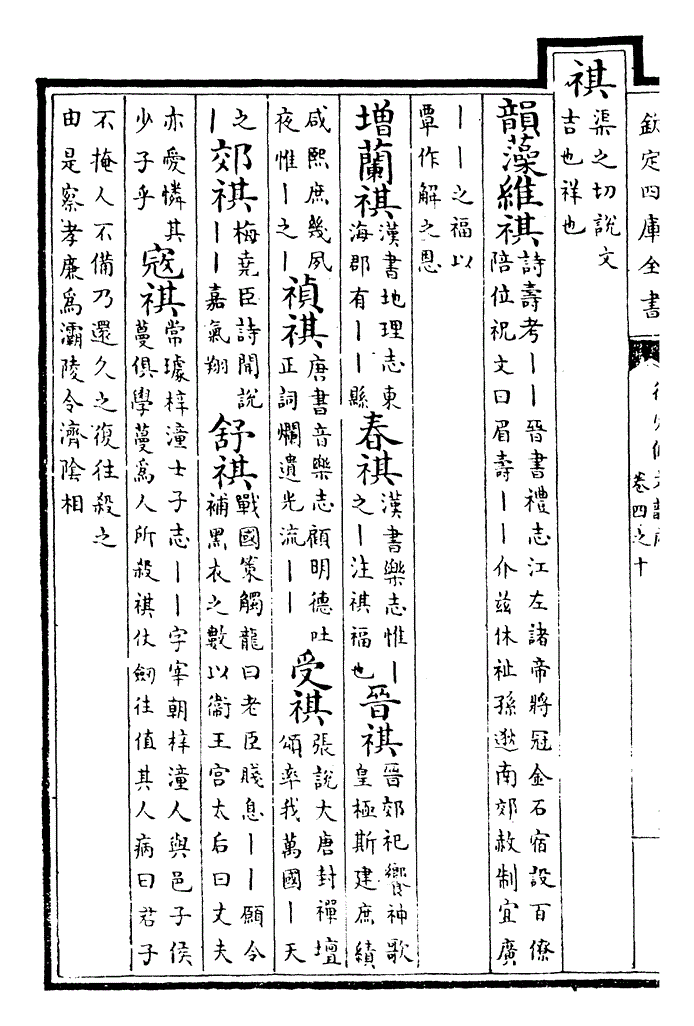 欽定四庫全書
卷四之十
祺
渠之切說文
吉也祥也
韻藻維祺
詩壽考丨丨晉書禮志江左諸帝將冠金石宿設百僚
陪位祝文曰眉壽丨丨介兹休祉孫逖南郊赦制宜廣
丨丨之福以
覃作解之恩
增蘭祺
漢書地理志東
海郡有丨丨縣
春祺
漢書樂志惟丨
之丨注祺福也
晉祺
晉郊祀饗神歌
皇極斯建庶績
咸熙庶幾夙
夜惟丨之丨
禎祺
唐書音樂志顧明德吐
正詞爛遺光流丨丨
受祺
張說大唐封禪壇
頌率我萬國丨天
之
丨
郊祺
梅堯臣詩聞說
丨丨嘉氣翔
舒祺
戰國策觸龍曰老臣賤息丨丨願令
補黑衣之數以衞王宫太后曰丈夫
亦愛憐其
少子乎
寇祺
常璩梓潼士子志丨丨字宰朝梓潼人與邑子侯
蔓俱學蔓爲人所殺祺仗劒往值其人病曰君子
不掩人不備乃還久之復往殺之
由是察孝廉爲灞陵令濟陰相